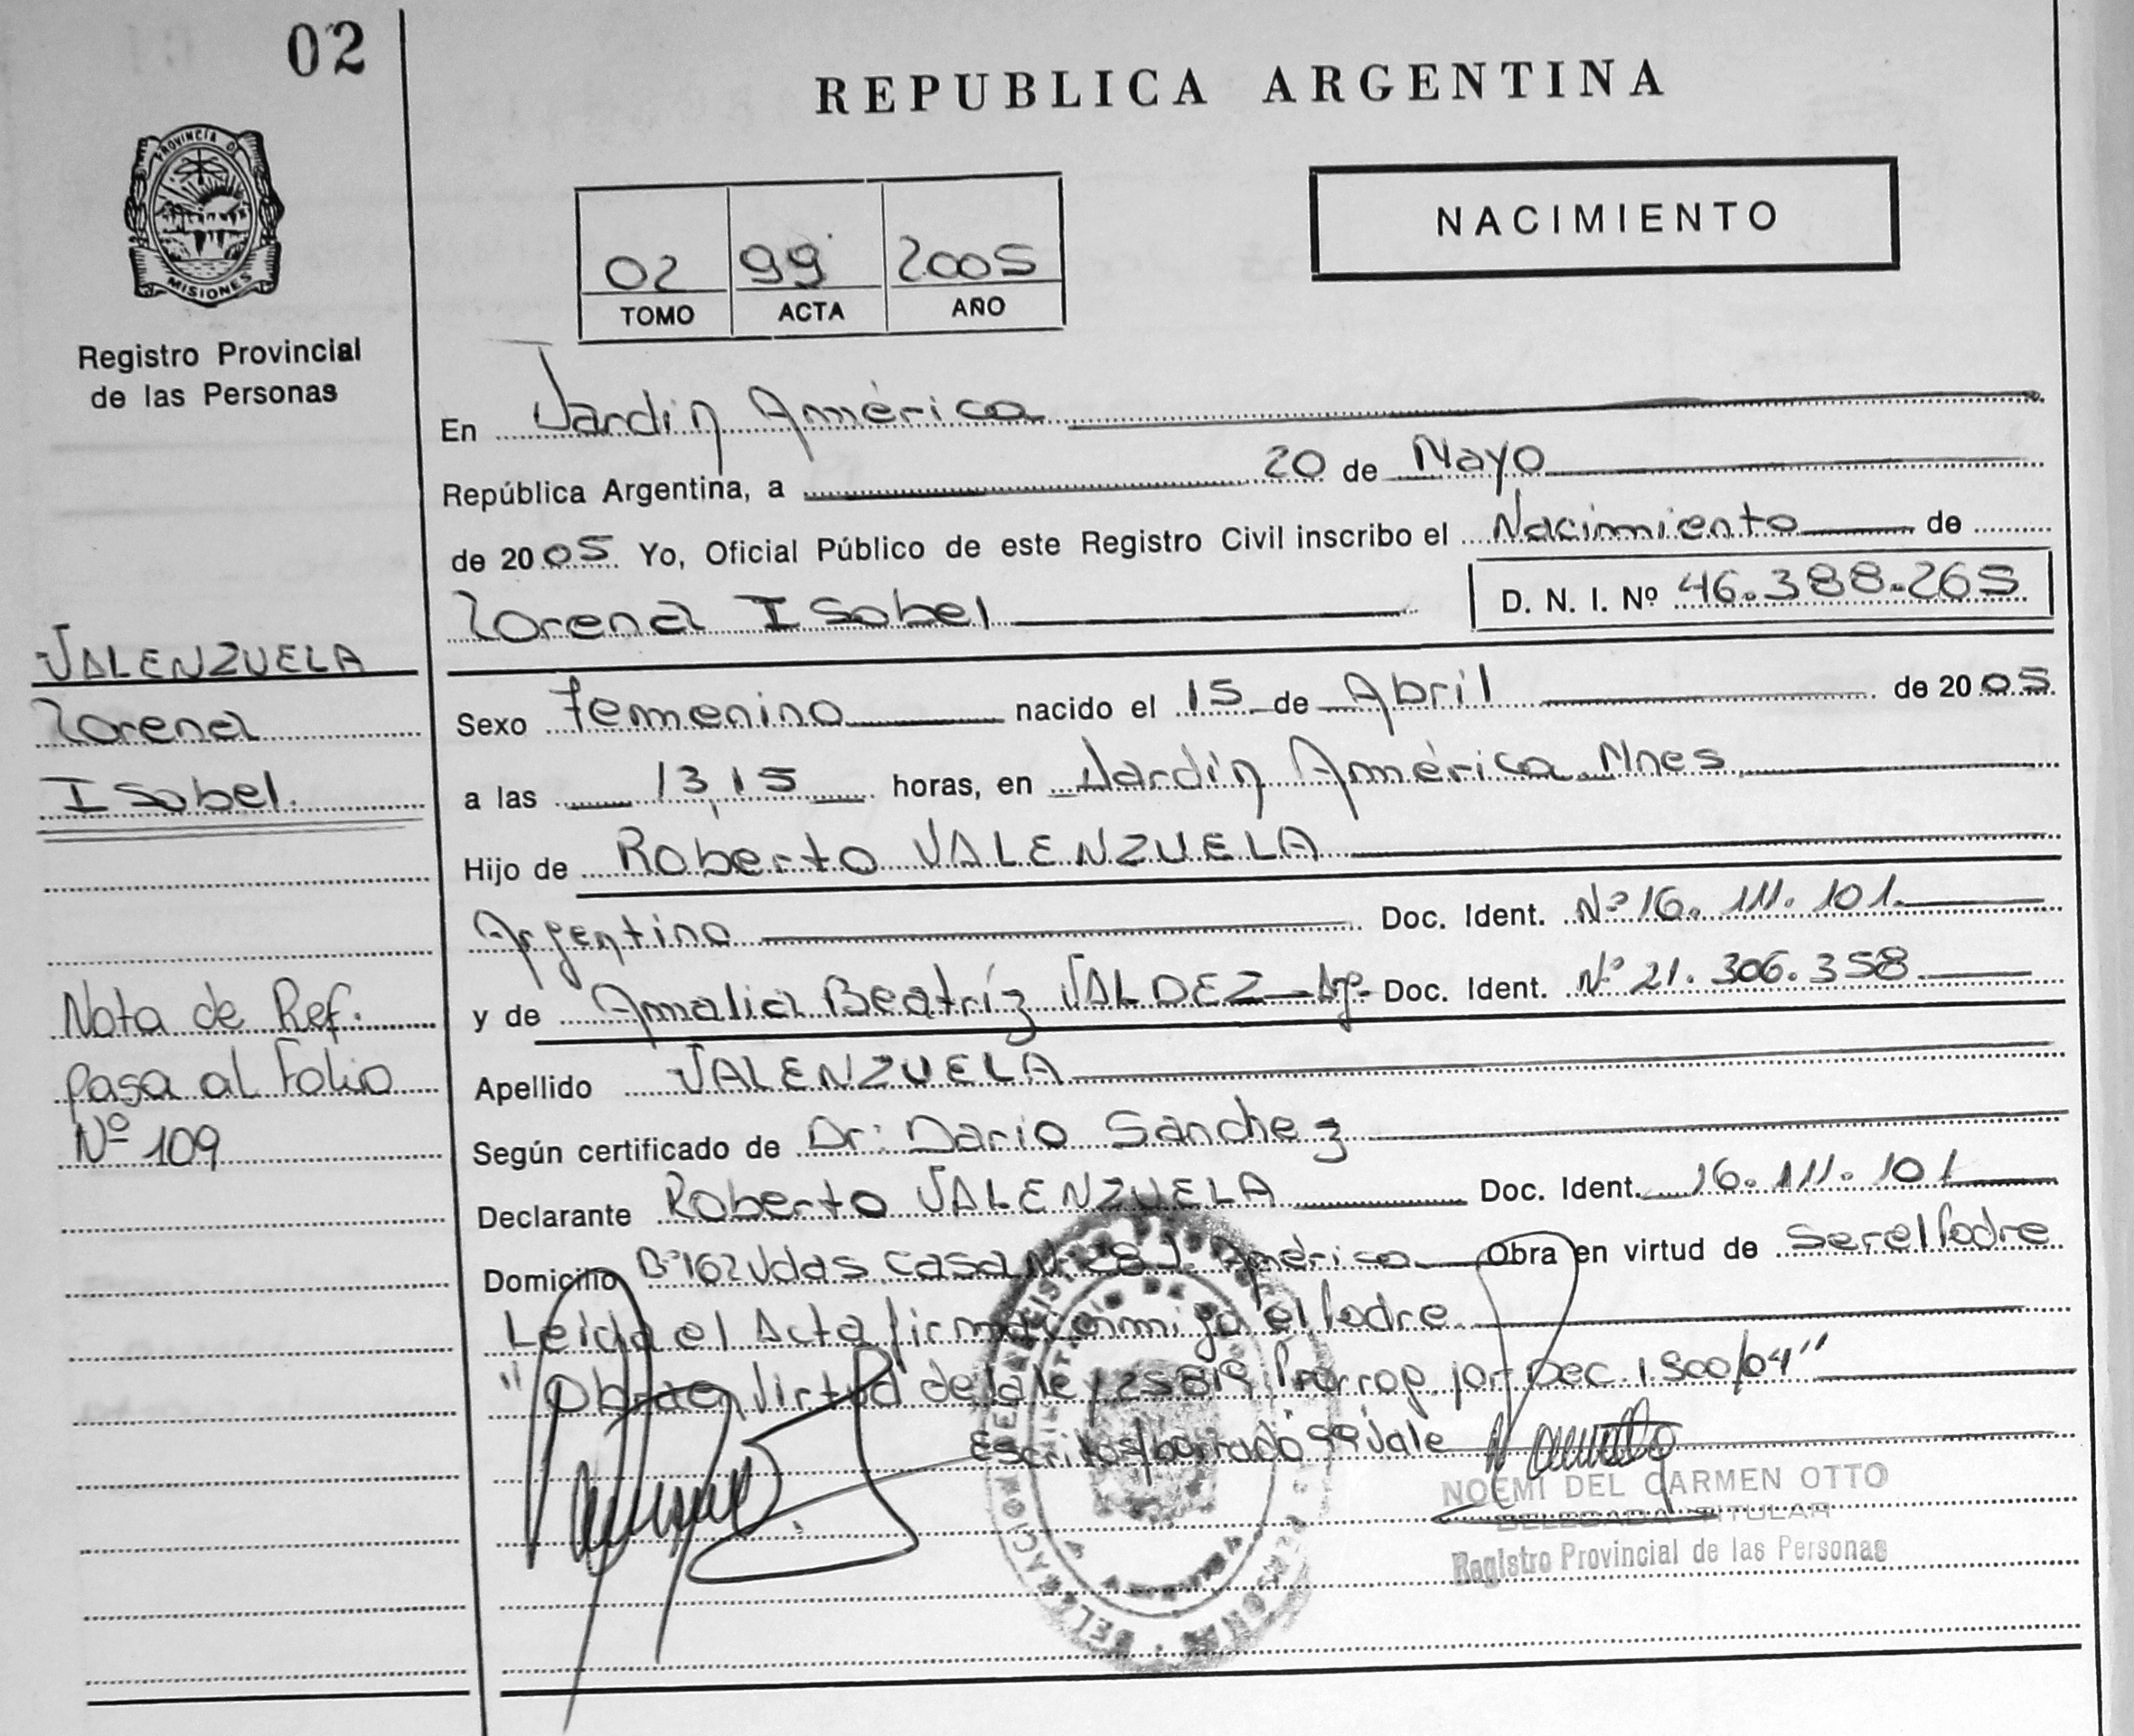 02
REPUBLICA ARGENTINA
PROVINCIA D
MISIONES
Registro Provincial
de las Personas
NACIMIENTO
02 99 2005
TOMO ACTA AÑO
En Jardín América
República Argentina, a 20 de Mayo
de 2005 Yo, Oficial Público de este Registro Civil inscribo el Nacimiento de
Lorena Isabel D. N. I. Nº 46.388.265
VALENZUELA
Lorena
Isabel.
Sexo Femenino nacido el 15 de Abril de 2005
a las 13,15 horas, en Jardín América Mnes
Hijo de Roberto VALENZUELA
Argentino Doc. Ident. Nº 16.111.101
y de Amalia Beatríz VALDEZ - Ar. Doc. Ident. Nº 21.306.358
Nota de Ref.
pasa al Folio
Nº 109
Apellido VALENZUELA
Según certificado de Dr: Dario Sanchez
Declarante Roberto VALENZUELA Doc. Ident. 16.111.101
Domicilio Bº 162 Vdas Casa Nº 28 J. América Obra en virtud de Ser el Padre
Leída el Acta firma conmigo el Padre
"Obra en Virtud de la ley 25819 Prorrog. por Dec. 1900/04"
Escrito s/borrado 99 Vale
NOEMI DEL CARMEN OTTO
DELEGADA TITULAR
Registro Provincial de las Personas